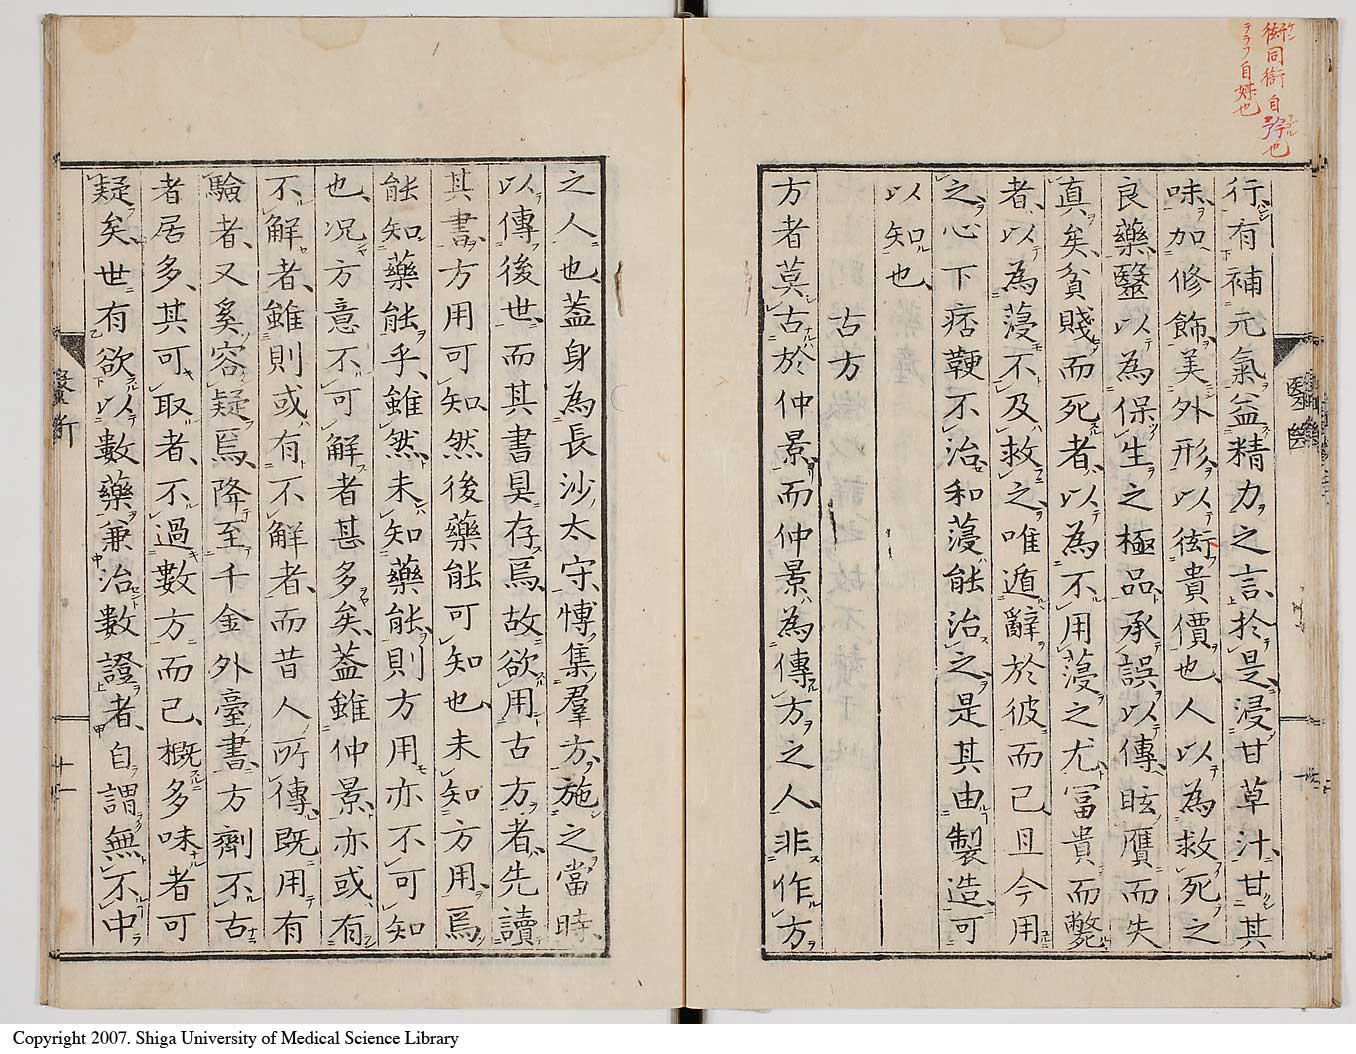 衒同衙自矜也
自媒也
行有補元氣益精力之言於是浸甘草汁甘其
味加修飾美外形以衒貴價也人以為救死之
良藥醫以為保生之極品承誤以傳眩贋而失
真矣貧賤而死者以為不用葠之尤冨貴而斃
者以為葠不及救之唯遁辭於彼而已且今用
之心下痞鞕不治和葠能治之是其由製造可
以知也
古方
方者莫古於仲景而仲景為傳方之人非作方
之人也蓋身為長沙太守慱集羣方施之當時
以傳後世而其書具存焉故欲用古方者先讀
其書方用可知然後藥能可知也未知方用焉
能知藥能乎雖然未知藥能則方用亦不可知
也况方意不可解者甚多矣蓋雖仲景亦或有
不解者雖則或有不解者而昔人所傳既用有
驗者又奚容疑焉降至千金外臺書方劑不古
者居多其可取者不過數方而已概多味者可
疑矣世有欲以數藥兼治數證者自謂無不中
醫斷
十一
Copyright 2007. Shiga University of Medical Science Library